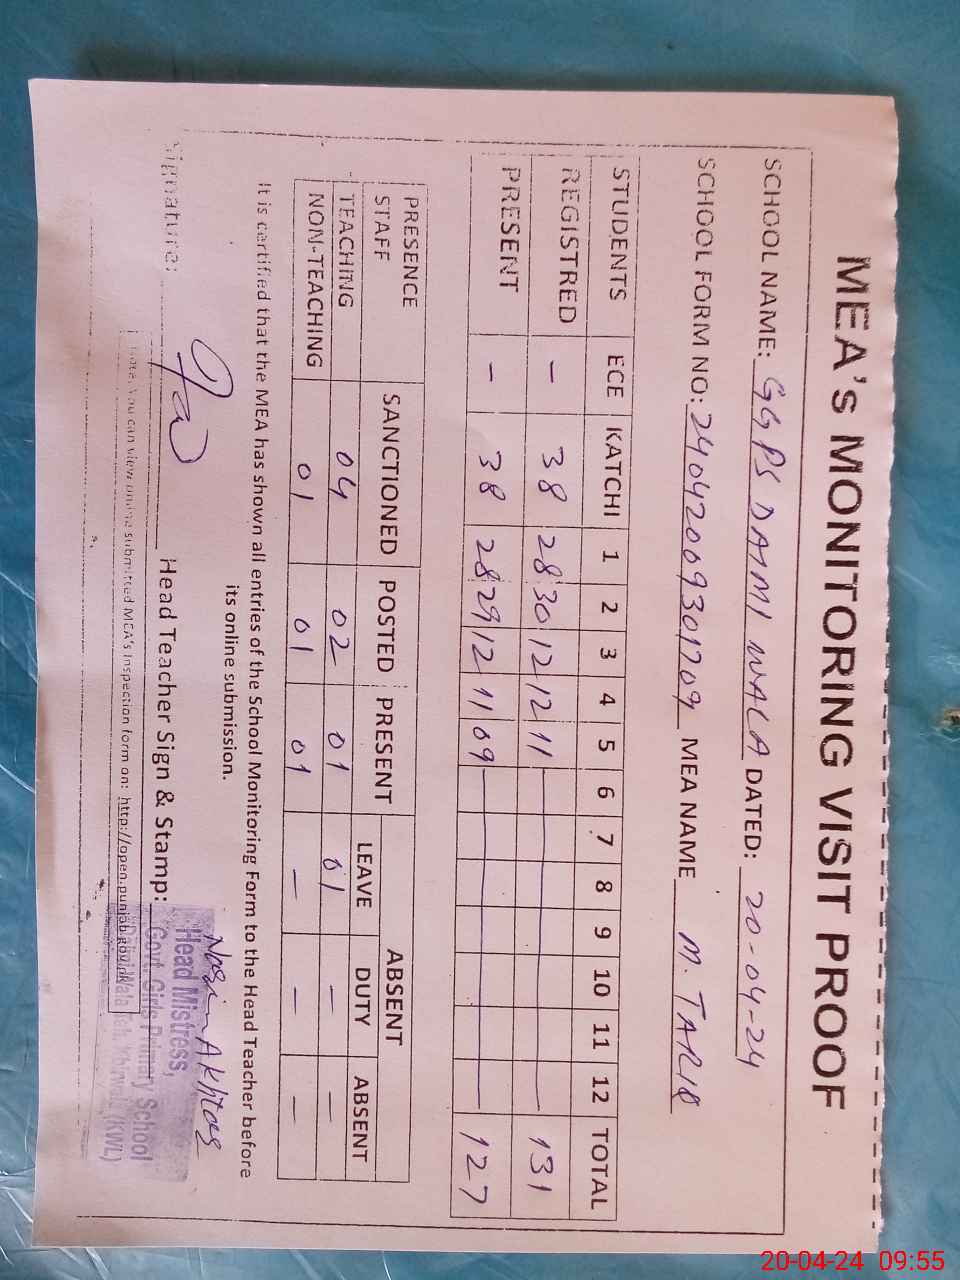 MEA's MONITORING VISIT PROOF
SCHOOL NAME: GGPS DAIMI WALA DATED: 20-04-24
SCHOOL FORM NO: MEA NAME M. TARIQ
STUDENTS ECE KATCHI 1 2 3 4 5 6 7 8 9 10 11 12 TOTAL
REGISTRED - 38 28 30 12 12 11 131
PRESENT - 38 28 29 12 11 09 127
PRESENCE SANCTIONED POSTED PRESENT ABSENT
STAFF LEAVE DUTY ABSENT
TEACHING 04 02 01 01 - -
NON-TEACHING 01 01 01 - - -
It is certified that the MEA has shown all entries of the School Monitoring Form to the Head Teacher before
its online submission.
Signature: Head Teacher Sign & Stamp:
Akhtar
Head Mistress,
Govt. Girls Primary School
Wala Teh. (KWL)
You can view online submitted MEA's Inspection form on: http://open.punjab.gov.pk
20-04-24 09:55